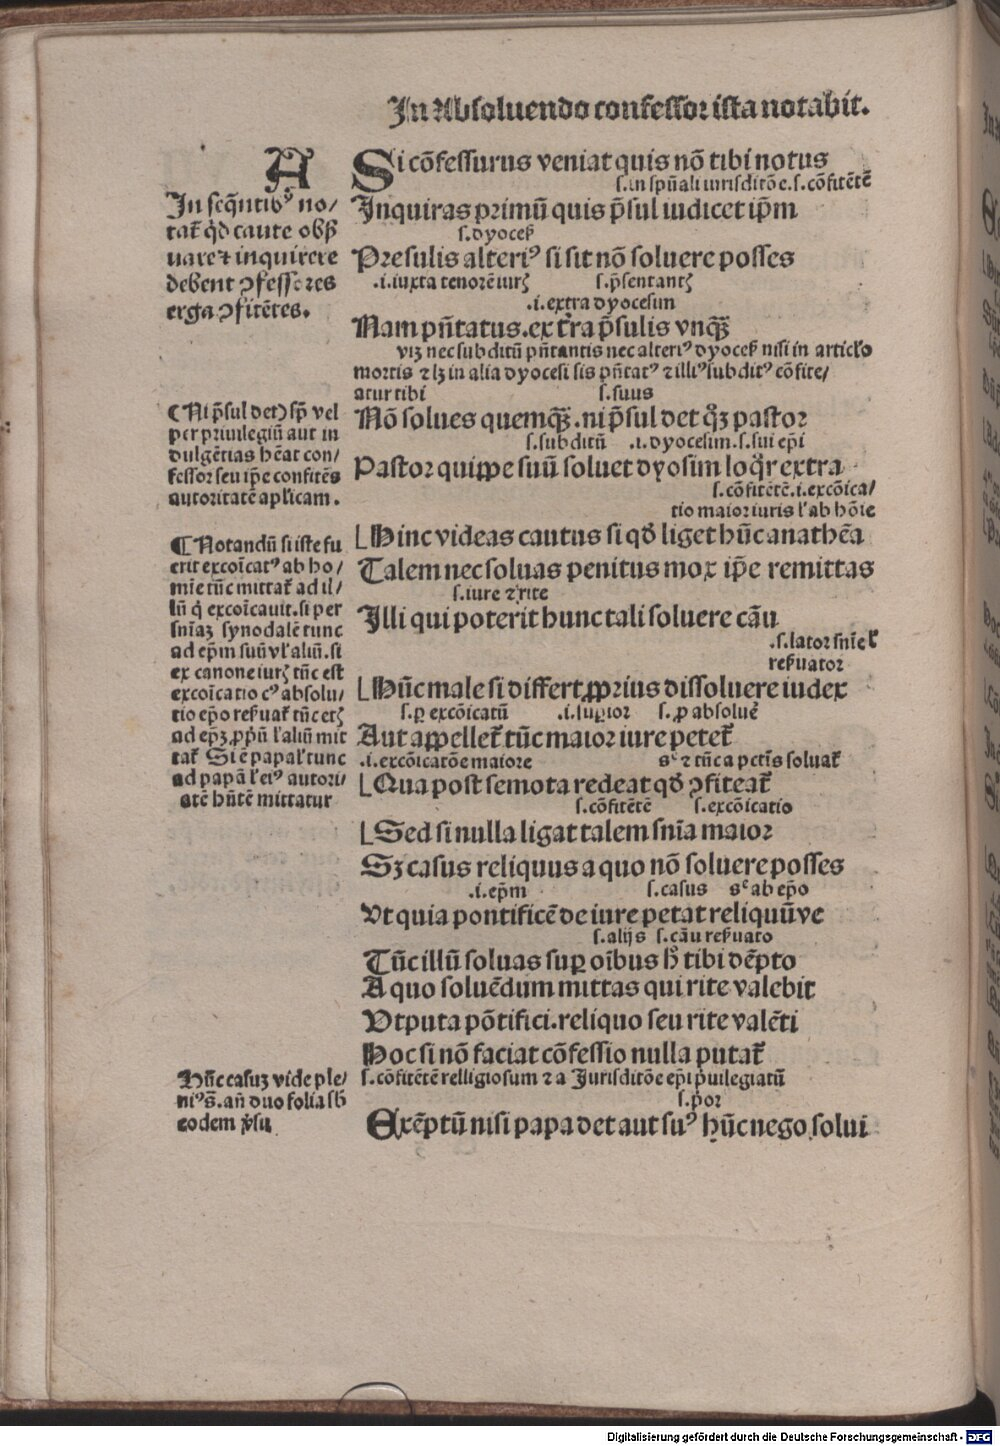 In Absoluendo confessor ista notabit.
A
In seq̃ntibꝰ no/
tat̃ qd̕ caute obẜ
uare ⁊ inquirere
debent ꝯfessores
erga ꝯfitẽtes.
Si cõfessurus veniat quis nõ tibi notus
s.in spũali iurisditõe.s.cõfitẽtẽ
Inquiras primũ quis p̃sul iudicet ip̃m
s.dyoceẜ
Presulis alteriꝰ si sit nõ soluere posses
.i.iuxta tenorẽ iurꝭ s.p̃sentantꝭ
.i.extra dyocesim
Nam pñtatus.ext̃ra p̃sulis vnqꝫ
viꝫ nec subditũ pñtantis nec alteriꝰ dyoceẜ nisi in articło
mortis ⁊ lꝫ in alia dyocesi sis pñtatꝰ ⁊ illiꝰ subditꝰ cõfite/
atur tibi s.suus
¶ Ni p̃sul det) sp̃ vel
per priuilegiũ aut in
dulgẽtias hẽat con/
fessor seu ip̃e confitẽs
autoritatẽ apl̕icam.
Nõ solues quemqꝫ.ni p̃sul det qꝫ pastor
s.subditũ .i.dyocesim.s.sui ep̃i
Pastor quippe suũ soluet dyosim loq̃r extra
s.cõfitẽtẽ.i.excõica/
tio maior iuris l̕ ab hõie
¶ Notandũ si iste fu
erit excoĩcatꝰ ab ho/
mĩe tũc mittat̃ ad il/
lũ q̇ excoĩcauit.si per
sñiaꝫ synodalẽ tunc
ad ep̃m suũ vl̕ aliũ.si
ex canone iurꝭ tũc est
excoĩcatio cꝰ absolu/
tio ep̃o reẜuat̃ tũc etꝭ
ad ep̃ꝫ ꝓp̃ũ l̕ aliũ mit
tat̃ Si ẽ papal̕ tunc
ad papã l̕ eiꝰ autori/
atẽ hñtẽ mittatur
Hinc videas cautus si qd̕ liget hũc anathẽa
Talem nec soluas penitus mox ip̃e remittas
s.iure ⁊ rite
Illi qui poterit hunc tali soluere cãu
.s.lator sñie l̕
reẜuator
Hũc male si differt ꝓprius dissoluere iudex
s.ꝑ excõicatũ .i.supior s.ꝓ absoluẽ
Aut appellet̃ tũc maior iure petet̃
.i.excõicatõe maiore sᶜ ⁊ tũc a pctĩs soluat̃
Qua post semota redeat qd̕ ꝯfiteat̃
s.cõfitẽtẽ s.excõicatio
Sed si nulla ligat talem sñia maior
Sꝫ casus reliquus a quo nõ soluere posses
.i.ep̃m s.casus sᶜ ab ep̃o
Vt quia pontificẽ de iure petat reliquũve
s.alijs s.cãu reẜuato
Tũc illũ soluas suꝑ oĩbus hꝰ tibi dẽpto
A quo soluẽdum mittas qui rite valebit
Vtputa põtifici.reliquo seu rite valẽti
Hoc si nõ faciat cõfessio nulla putat̃
Hũc casuꝫ vide ple/
niꝰ s̃.añ duo folia sb̕
eodem v̕su
s.cõfitẽtẽ relligiosum ⁊ a Jurisditõe ep̃i p̕uilegiatũ
s.p̕or
Exẽptũ nisi papa det aut suꝰ hũc nego solui
Digitalisierung gefördert durch die Deutsche Forschungsgemeinschaft - DFG